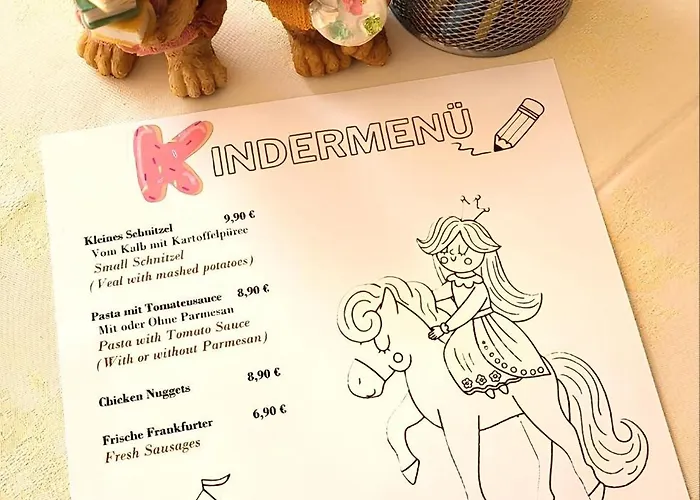 KINDERMENÜ
Kleines Schnitzel 9,90 €
Vom Kalb mit Kartoffelpüree
Small Schnitzel
(Veal with mashed potatoes)
Pasta mit Tomatensauce 8,90 €
Mit oder Ohne Parmesan
Pasta with Tomato Sauce
(With or without Parmesan)
Chicken Nuggets 8,90 €
Frische Frankfurter 6,90 €
Fresh Sausages